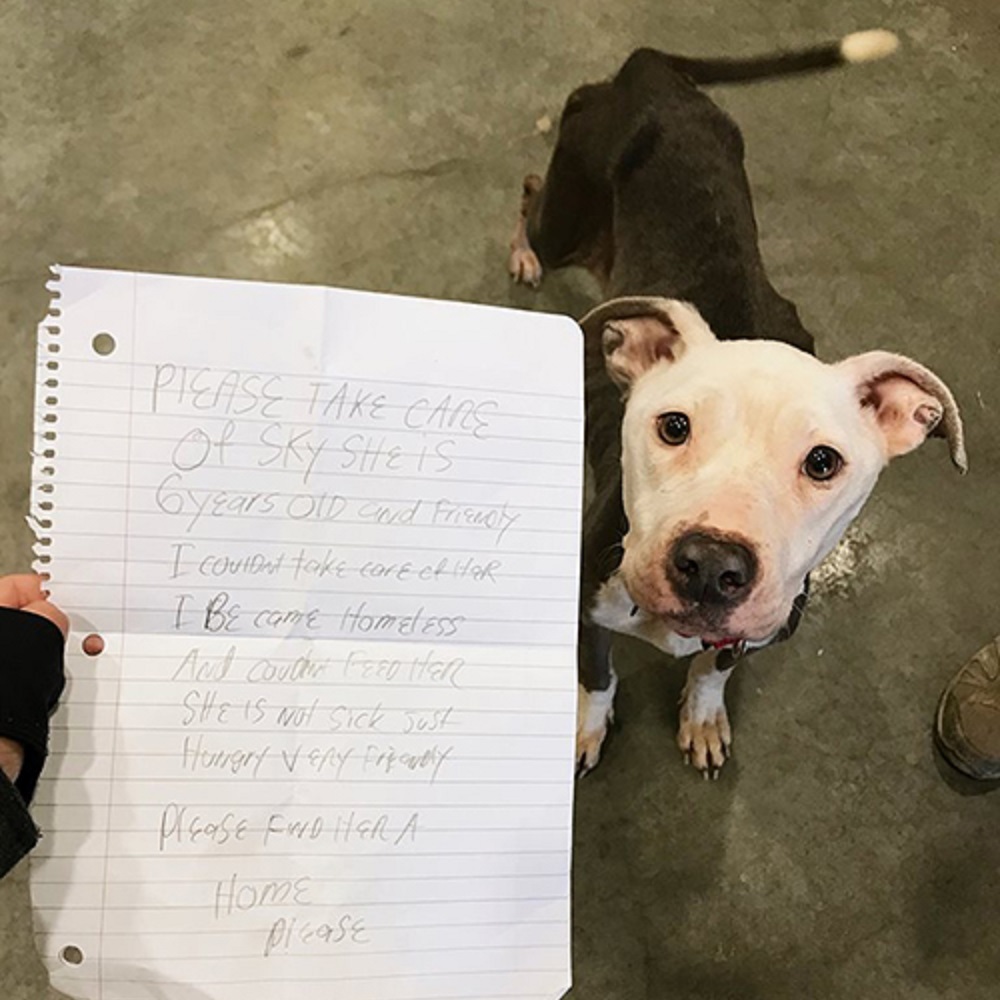 PlEASE TAKE CARE
Of SKY SHE iS
6 years OlD and Friendly
I couldnt take care of HER
I BE came Homeless
And couldnt FEED HER
SHE is not sick just
Hungry VERy Friendly
PlEaSE FIND HER A
HOME
PlEaSE